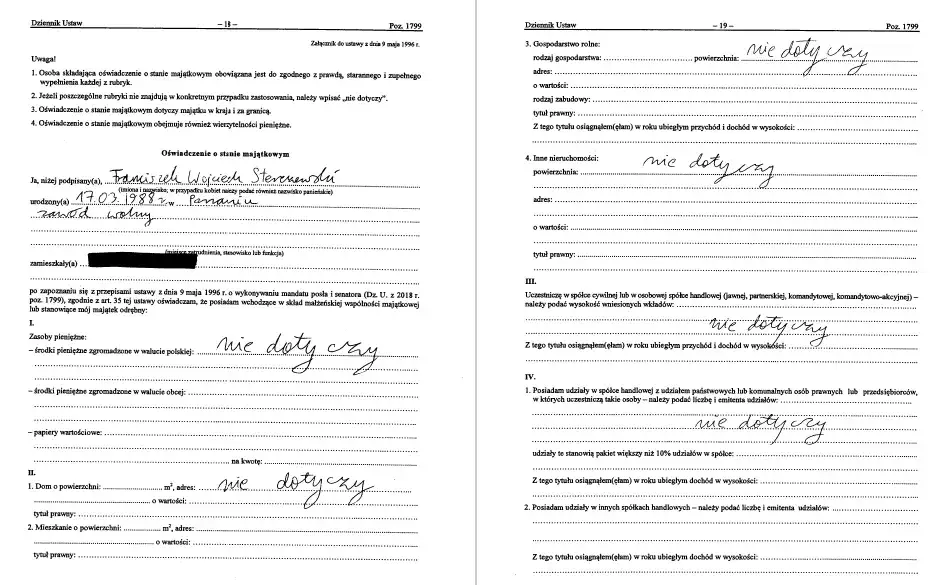 Dziennik Ustaw – 18 – Poz. 1799
Załącznik do ustawy z dnia 9 maja 1996 r.
Uwaga!
1. Osoba składająca oświadczenie o stanie majątkowym obowiązana jest do zgodnego z prawdą, starannego i zupełnego
wypełnienia każdej z rubryk.
2. Jeżeli poszczególne rubryki nie znajdują w konkretnym przypadku zastosowania, należy wpisać „nie dotyczy”.
3. Oświadczenie o stanie majątkowym dotyczy majątku w kraju i za granicą.
4. Oświadczenie o stanie majątkowym obejmuje również wierzytelności pieniężne.
Oświadczenie o stanie majątkowym
Ja, niżej podpisany(a), Franciszek Wojciech Sterczewski
(imiona i nazwisko; w przypadku kobiet należy podać również nazwisko panieńskie)
urodzony(a) 17.03.1988 r. w Poznaniu
zawód wolny
(miejsce zatrudnienia, stanowisko lub funkcja)
zamieszkały(a)
po zapoznaniu się z przepisami ustawy z dnia 9 maja 1996 r. o wykonywaniu mandatu posła i senatora (Dz. U. z 2018 r.
poz. 1799), zgodnie z art. 35 tej ustawy oświadczam, że posiadam wchodzące w skład małżeńskiej wspólności majątkowej
lub stanowiące mój majątek odrębny:
I.
Zasoby pieniężne:
– środki pieniężne zgromadzone w walucie polskiej: nie dotyczy
– środki pieniężne zgromadzone w walucie obcej:
– papiery wartościowe:
na kwotę:
II.
1. Dom o powierzchni: m², adres: nie dotyczy
o wartości:
tytuł prawny:
2. Mieszkanie o powierzchni: m², adres:
o wartości:
tytuł prawny:
Dziennik Ustaw – 19 – Poz. 1799
3. Gospodarstwo rolne:
rodzaj gospodarstwa: powierzchnia: nie dotyczy
adres:
o wartości:
rodzaj zabudowy:
tytuł prawny:
Z tego tytułu osiągnąłem(ęłam) w roku ubiegłym przychód i dochód w wysokości:
4. Inne nieruchomości:
powierzchnia: nie dotyczy
adres:
o wartości:
tytuł prawny:
III.
Uczestniczę w spółce cywilnej lub w osobowej spółce handlowej (jawnej, partnerskiej, komandytowej, komandytowo-akcyjnej) –
należy podać wysokość wniesionych wkładów:
nie dotyczy
Z tego tytułu osiągnąłem(ęłam) w roku ubiegłym przychód i dochód w wysokości:
IV.
1. Posiadam udziały w spółce handlowej z udziałem państwowych lub komunalnych osób prawnych lub przedsiębiorców,
w których uczestniczą takie osoby – należy podać liczbę i emitenta udziałów:
nie dotyczy
udziały te stanowią pakiet większy niż 10% udziałów w spółce:
Z tego tytułu osiągnąłem(ęłam) w roku ubiegłym dochód w wysokości:
2. Posiadam udziały w innych spółkach handlowych – należy podać liczbę i emitenta udziałów:
Z tego tytułu osiągnąłem(ęłam) w roku ubiegłym dochód w wysokości: